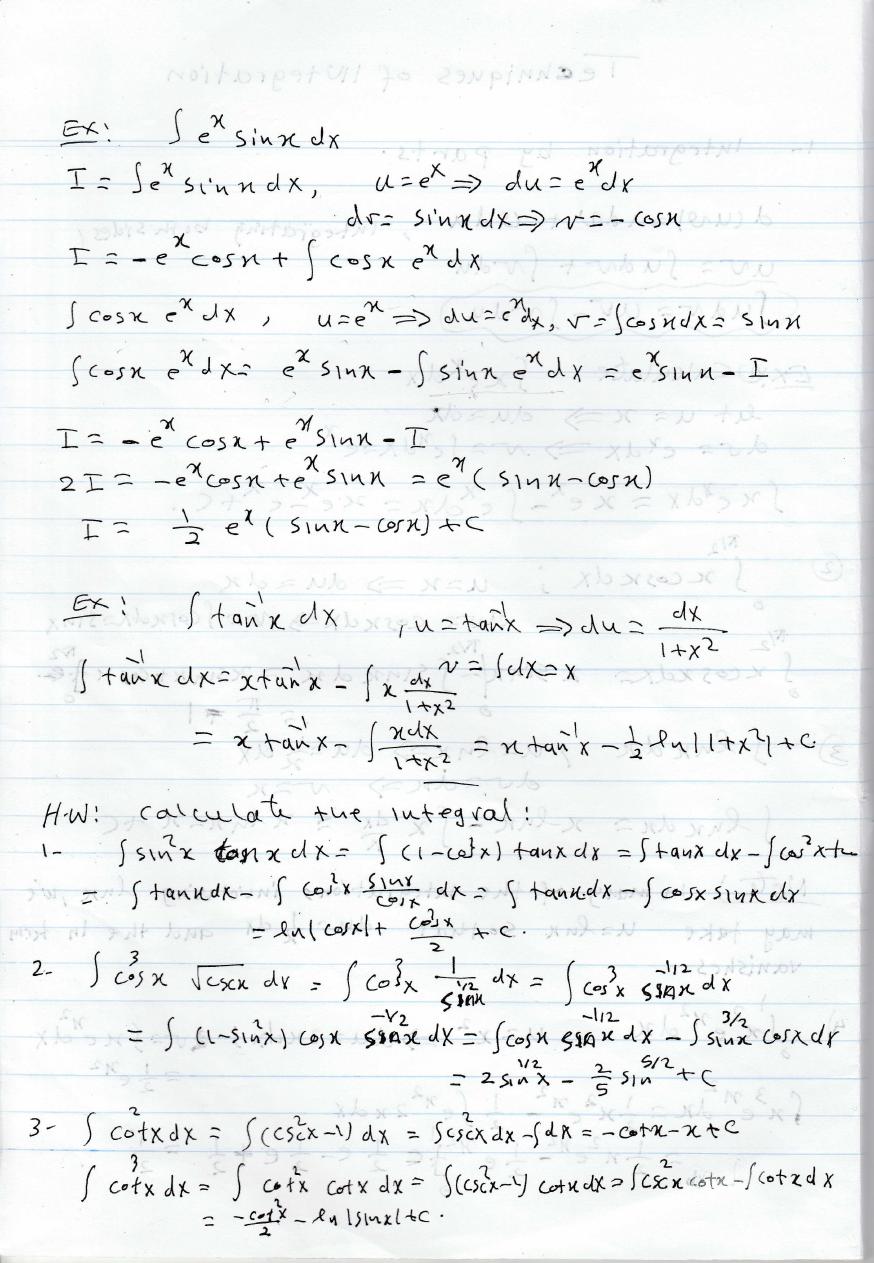 Ex: ∫ eˣ sinx dx
I = ∫eˣ sinx dx, u = eˣ ⇒ du = eˣdx
dv = sinx dx ⇒ v = - cosx
I = - eˣ cosx + ∫ cosx eˣ dx
∫ cosx eˣ dx , u = eˣ ⇒ du = eˣdx, v = ∫cosxdx = sinx
∫ cosx eˣ dx = eˣ sinx - ∫ sinx eˣ dx = eˣ sinx - I
I = - eˣ cosx + eˣ sinx - I
2I = -eˣ cosx + eˣ sinx = eˣ ( sinx - cosx)
I = 1/2 eˣ ( sinx - cosx) + C
Ex: ∫ tan⁻¹x dx , u = tan⁻¹x ⇒ du = dx/(1+x²)
∫ tan⁻¹x dx = x tan⁻¹x - ∫ x dx/(1+x²) v = ∫dx = x
= x tan⁻¹x - ∫ xdx/(1+x²) = x tan⁻¹x - 1/2 ln|1+x²| + C
H.W: Calculate the integral:
1- ∫ sin²x tanx dx = ∫ (1-cos²x) tanx dx = ∫tanx dx - ∫cos²x tan
= ∫ tanxdx - ∫ cos²x sinx/cosx dx = ∫ tanx.dx - ∫ cosx sinx dx
= ln|cosx| + cos²x/2 + C.
2- ∫ cos³x √cscx dx = ∫ cos³x 1/sin^(1/2)x dx = ∫ cos³x sin^(-1/2)x dx
= ∫ (1-sin²x) cosx sin^(-1/2)x dx = ∫cosx sin^(-1/2)x dx - ∫ sin^(3/2)x cosx dx
= 2 sin^(1/2)x - 2/5 sin^(5/2) + C
3- ∫ cot²x dx = ∫(csc²x-1) dx = ∫csc²x dx - ∫dx = -cotx - x + C
∫ cot³x dx = ∫ cot²x cotx dx = ∫(csc²x-1) cotx dx = ∫csc²x cotx - ∫cotx dx
= -cot²x/2 - ln |sinx| + C.